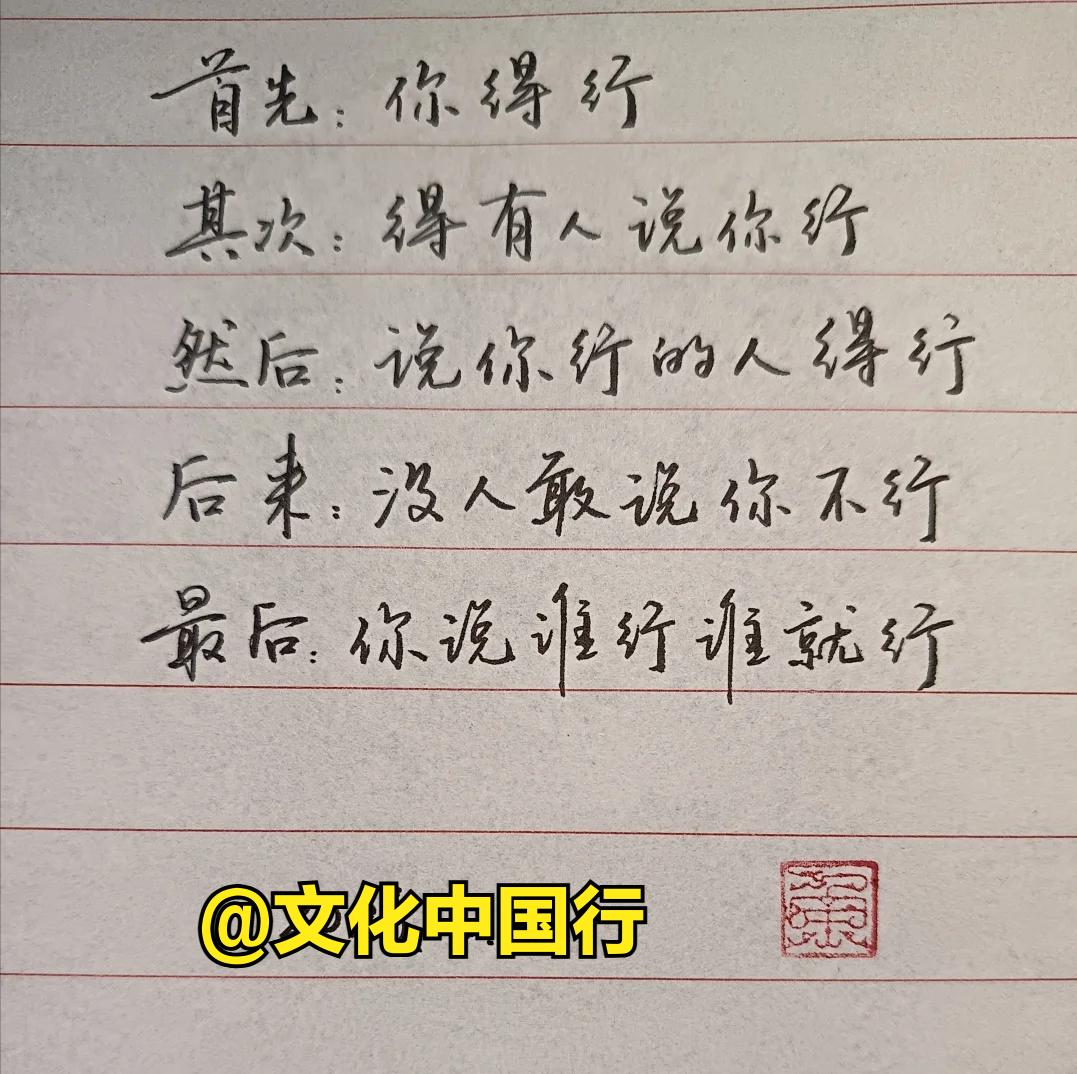 首先：你得行
其次：得有人说你行
然后：说你行的人得行
后来：没人敢说你不行
最后：你说谁行谁就行
@文化中国行